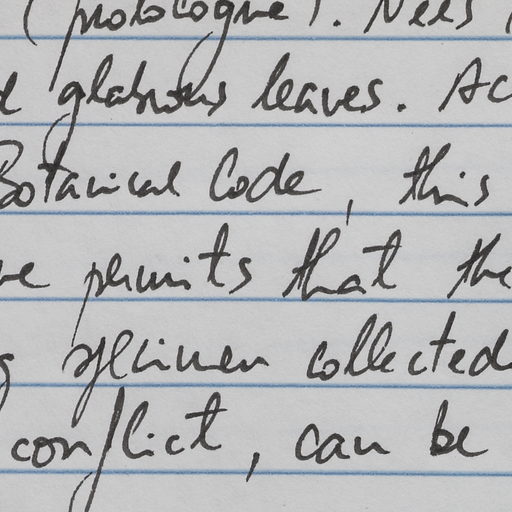 (protologue). Nees
glabrous leaves. Ac
Botanical Code, this
permits that the
specimen collected
conflict, can be